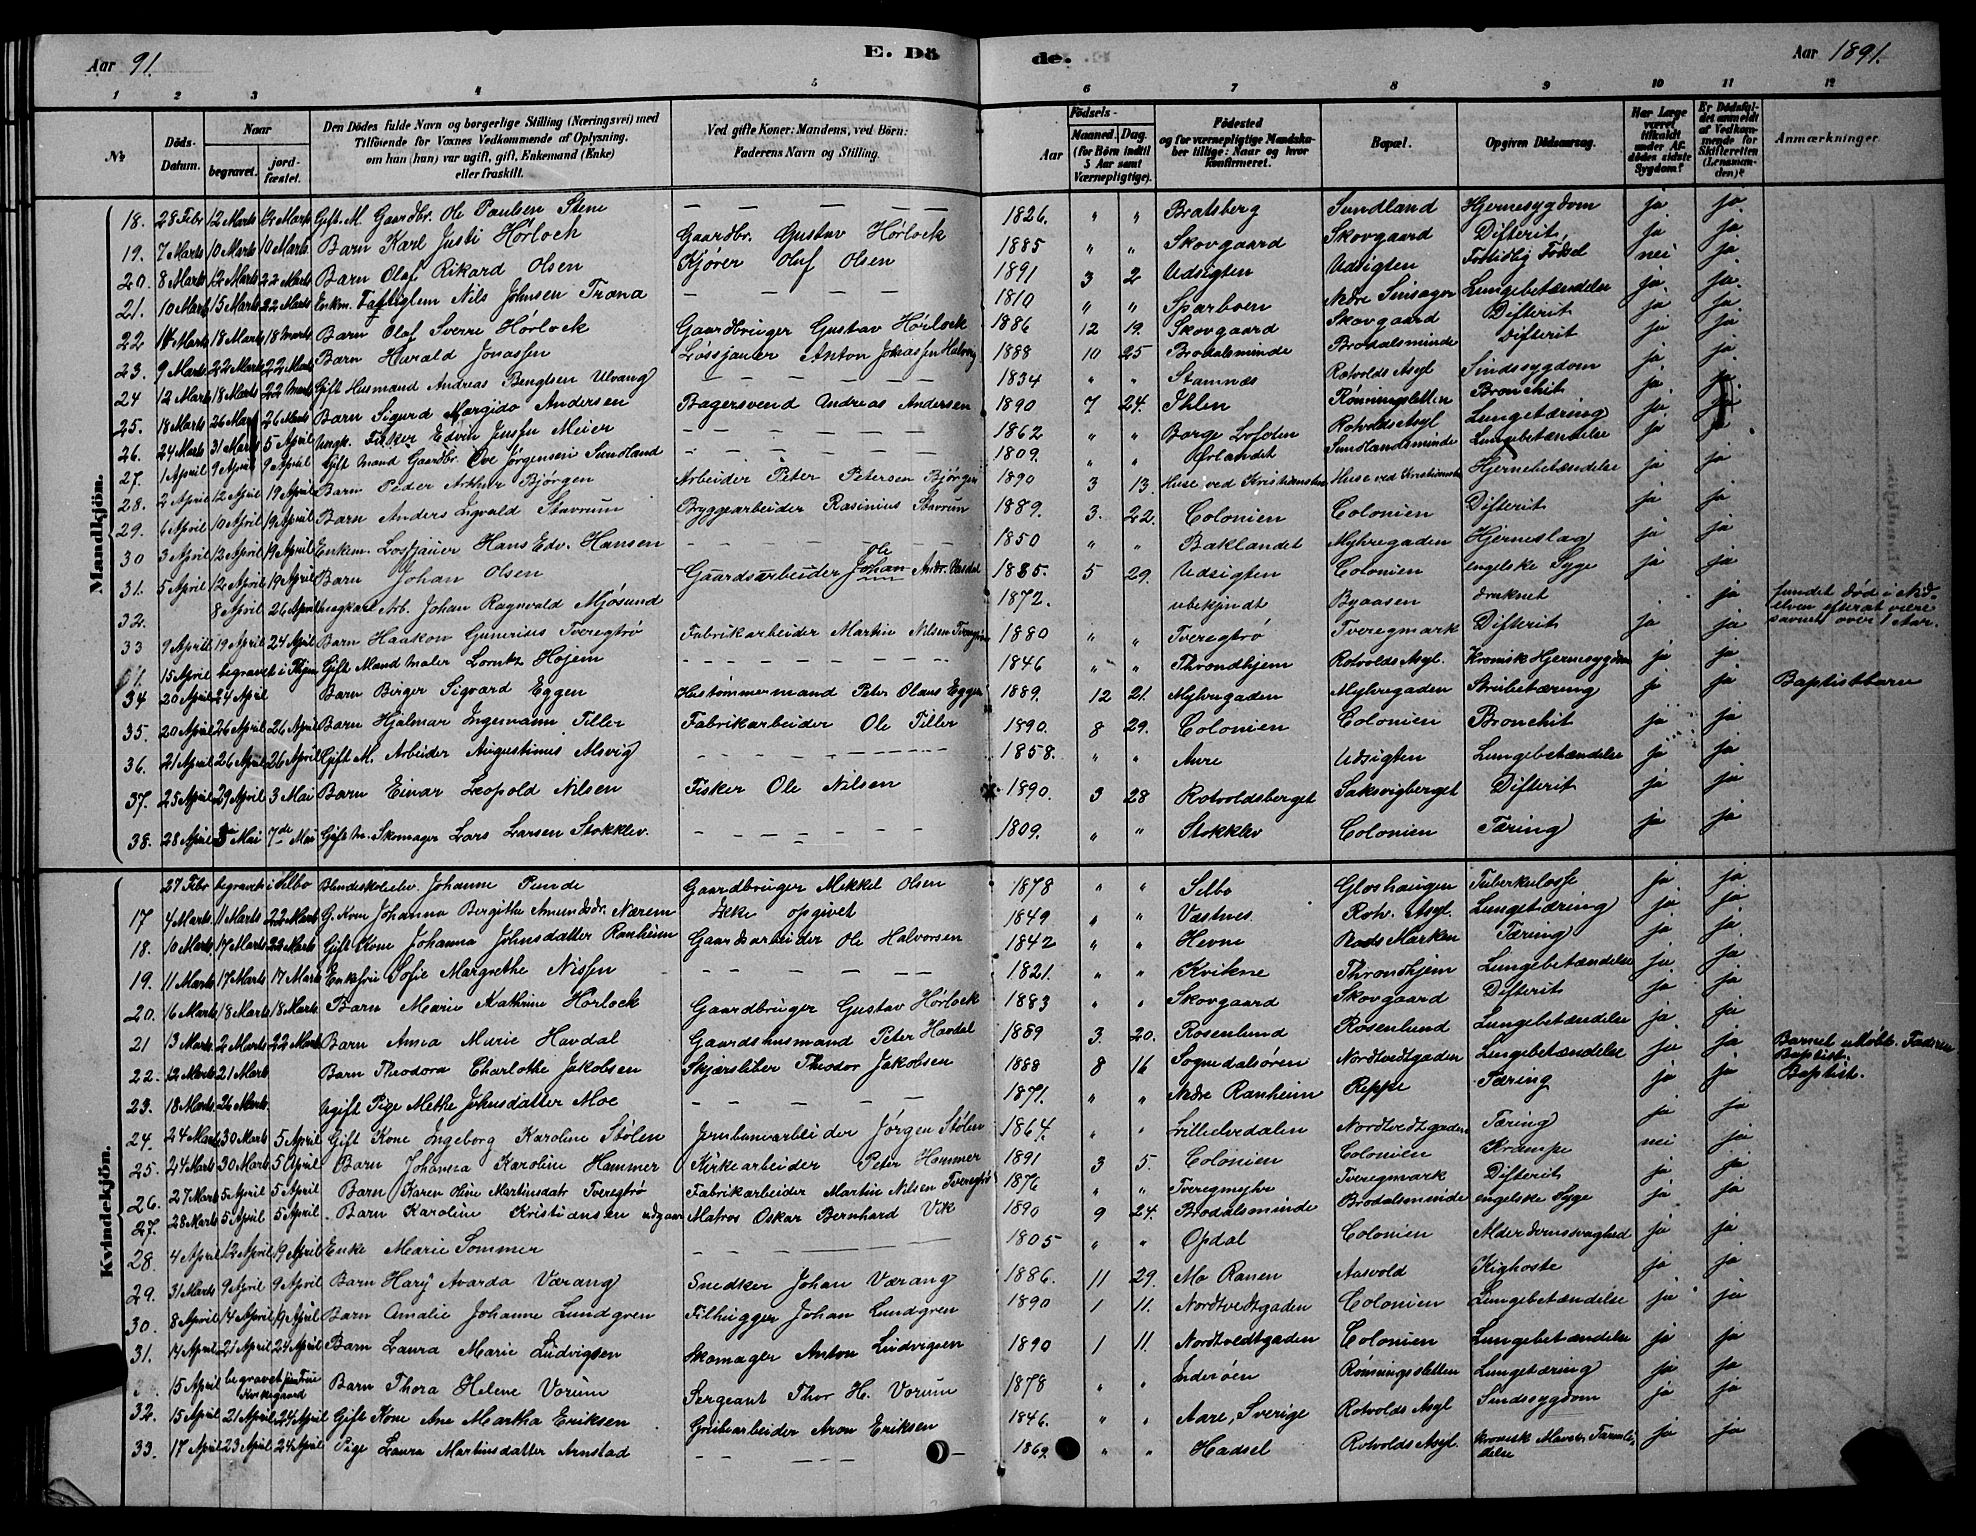 Aar 91. E. Dö de. Aar 1891.
1 2 3 4 5 6 7 8 9 10 11 12
No Döds-Datum. Naar begravet. jordfæstet. Den Dödes fulde Navn og borgerlige Stilling (Næringsvei) med Tilföiende for Voxnes Vedkommende af Oplysning, om han (hun) var ugift, gift, Enkemand (Enke) eller fraskilt. Ved gifte Koner: Mandens, ved Börn: Faderens Navn og Stilling. Aar Födsels- Maaned. Dag. (for Börn indtil 5 Aar samt Værnepligtige). Födested og for værnepligtige Mandskaber tillige: Naar og hvor Konfirmeret. Bopæl. Opgiven Dödsaarsag. Har Læge været tilkaldt under Afdödes sidste Sygdom? Er Dödsfaldet anmeldt af Vedkommende for Skifteretten (Lensmanden)? Anmærkninger.
Mandkjön.
18. 28 Febr 12 Marts Gift M. Gaardbr. Ole Paulsen Stene — — — — — 1826. " " Bratsberg Sundland Hjernesygdom ja ja.
19. 7 Marts 10 Marts 10 Marts Barn Karl Justi Hørlock Gaardbr. Gustav Hørlock 1885 " " Skovgaard Skovgaard Difterit, ja ja
20. 8 Marts 12 Marts 22 Marts Barn Olaf Rikard Olsen Kjører Oluf Olsen 1891 3 2 Udsigten Udsigten Fortidlig Fødsel nei ja.
21. 10 Marts 15 Marts 22 Marts Enkm. Nils Johnsen Trana — — — — 1810 " " Sparboen Nedre Lungebetændelse ja. ja.
22 18 Marts 18 Marts Barn Olaf Sverre Hørlock Gaardbruger Gustav Hørlock 1886 12 19. Skovgaard Skovgaard Difterit ja ja
23. 9 Marts 22 Marts 22 Marts Barn Harald Jonassen Løssjauer Anton Jonassen 1888 10 25 Brodalsminde Brodalsminde Difterit ja ja
24 12 Marts 18 Marts 22 Marts Gift Husmand Andreas Bengtsen Ulvang — — — — — 1834 " " Stamnæs Rotvolds Asyl Sindssygdom ja ja
25. 18 Marts 26 Marts 26 Marts Barn Sigurd Margido Andersen Bagersvend Andreas Andersen 1890 7 24. Ihlen Rønningsletten Bronchit ja. ja
26. 24 Marts 31 Marts 5 April Ungk. Fisker Edvin Jensen Meier — — — — — 1862 " " Borge Lofoten Rotvolds Asyl Lungetæring ja ja
27. 1 April 9 April 9 April Gift Mand Gaardbr. Ove Jørgensen Sundland — — — — — 1809. " " Ørlandet Sundlandsminde Lungebetændelse ja ja
28. 2 April 12 April 19 April Barn Peder Arthur Bjørgen Arbeider Peter Petersen Bjørgen 1890 3 13. Huse ved Huse ved Hjernebetændelse ja ja
29. 6 April 10 April 19 April Barn Anders Ingvald Stavrum Bryggearbeider Rasinius Stavrum 1889. 3. 22. Colonien Colonien Difterit ja ja
30 3 April 12 April 19 April Enkem. Løssjauer Hans Edv. Hansen — — — — — 1850 " " Baklandet Myhregaden Hjerneslag ja ja
31. 5 April 12 April 19 April Barn Johan Olsen Gaardsarbeider Johan Ole Andr. 1885. 5 29. Udsigten Colonien engelske Syge ja ja
32. 8 April 26 April Ungkarl Arb. Johan Ragnvald Mjøsund 1872. ubekjendt Byaasen druknet ja fundet død i Nid- elven efterat være savnet over 1 Aar.
33 9 April 19 April 24 April Barn Haakon Gunerius Tveregtrø Fabrikarbeider Martin Nilsen 1880 " " Tveregtrø Tveregmark Difterit ja ja
15 April begravet i Thjem Gift Mand Maler Lorntz Højem — — — — — 1846 " " Throndhjem Rotvolds Asyl. Kronisk Hjernesygdom ja ja
34 20 April 24 April Barn Birger Sigvard Eggen Hustømmermand Peter Olaus Eggen 1889. 12 21. Myhregaden Myhregaden Strubetæring ja ja Baptistbarn
35. 20 April 26 April 26 April Barn Hjalmar Ingemann Tiller Fabrikarbeider Ole Tiller 1890. 8 29. Colonien Colonien Bronchit ja ja
36. 21 April 26 April 26 April Gift M. Arbeider Augustinus Alsvig — — — — — 1858. " " Aure Udsigten Lungebetændelse ja ja
37. 25 April 29 April 3 Mai Barn Einar Leopold Nilsen Fisker Ole Nilsen 1890. 3 28 Rotvoldsberget Saksvigberget Difterit ja ja
38. 28 April Mai 7de Mai Gift M. Skomager Lars Larsen Stokklev. — — — — — 1809. " " Stokklev Colonien Tæring ja ja
Kvindekjön.
27 Febr begravet i Selbo Blindeskoleelev. Johanne Gaardbruger Mekkel Olsen 1878 " " Selbo Gloshaugen Tuberkulosse ja ja
17 4 Marts 11 Marts 22 Marts G. Kone Johanna Bergithe Amundsdr. Nærem Ikke opgivet 1849 " " Væstnes Rotv. Asyl. Lungetæring ja ja
18. 10 Marts 17 Marts 22 Marts Gift Kone Johanna Johnsdatter Ranheim Gaardsarbeider Ole Halvorsen 1842 " " Hevne Marken Tæring ja ja
19. 11 Marts 17 Marts 17 Marts Enkefru Sofie Margrethe Nissen — — — — — 1821. " " Kvikne Throndhjem Lungebetændelse ja ja
20. 16 Marts 18 Marts 18 Marts. Barn Marie Kathrine Hørlock Gaardbruger Gustav Hørlock 1883 " " Skovgaard Skovgaard Difterit ja ja
21 13 Marts. 2 Marts 22 Marts Barn Anna Marie Havdal Gaardshusmand Peter Havdal 1889 3. 20. Rosenlund Rosenlund Lungebetændelse ja ja
22. 12 Marts 21 Marts Barn Theodora Charlothe Jakobsen Skjærsliber Theodor Jakobsen 1888 8 16 Sogndalsøren Nordtvedtgaden Lungebetændelse ja ja Barnet udøbt. Faderen Baptist.
23. 18 Marts 26 Marts. Ugift Pige Methe Johnsdatter Moe — — — — — 1871. " " Nedre Ranheim Reppe Tæring ja ja Baptist.
24. 24 Marts 30 Marts 5 April Gift Kone Ingeborg Karoline Stølen Jernbanearbeider Jørgen Stølen 1864. " " Lilleelvedalen Nordtvedtgaden Tæring ja ja
25. 24 Marts 30 Marts 5 April Barn Johanna Karoline Hammer Kirkearbeider Peter Hammer 1891 3 5. Colonien Colonien Krampe nei ja
26. 27 Marts 5 April 5 April Barn Karen Oline Martinsdatr Tveregtrø Fabrikarbeider Martin Nilsen Tveregtrø 1876 " " Tveregmyhr Tveregmark Difterit ja ja
27. 28 Marts 5 April 5 April Barn Karoline Kristiansen Matros Oskar Bernhard Vik 1890 9 24. Brodalsminde Brodalsminde engelske Syge ja ja
28. 4 April 12 April 19 April Enke Marie Sommer — — — — — 1805 " " Opdal Colonien Alderdomssvaghed ja ja
29. 31 Marts 9 April 9 April Barn Harý Avarda Værang Snedker Johan Værang 1886. 11 29. Mo Ranen Aasvold Kighoste ja ja
30. 8 April 14 April 19 April Barn Amalie Johanne Lundgren Filhugger Johan Lundgren 1890 1 11. Nordtvedtgaden Colonien Lungebetændelse ja ja
31. 14 April 21 April 24 April Barn Laura Marie Ludvigsen Skomager Anton Ludvigsen 1890 1 11. Nordtvedtgaden Colonien Lungebetændelse ja ja
15 April begravet Frue Kirkegaard Barn Thora Helene Vorum Sergeant Thor H. Vorum 1878 " " Inderøen Rønningsletten Lungetæring ja ja
32. 15 April 21 April 24 April Gift Kone Ane Martha Eriksen Grubearbeider Aron Eriksen 1846. " " Aare, Sverige Rotvolds Asyl Sindssygdom ja ja
33. 17 April 23 April 24 April Pige Laura Martinsdatter Arnstad — — — — — 1862 " " Hadsel Rotvolds Asyl. kronisk Mave ja ja